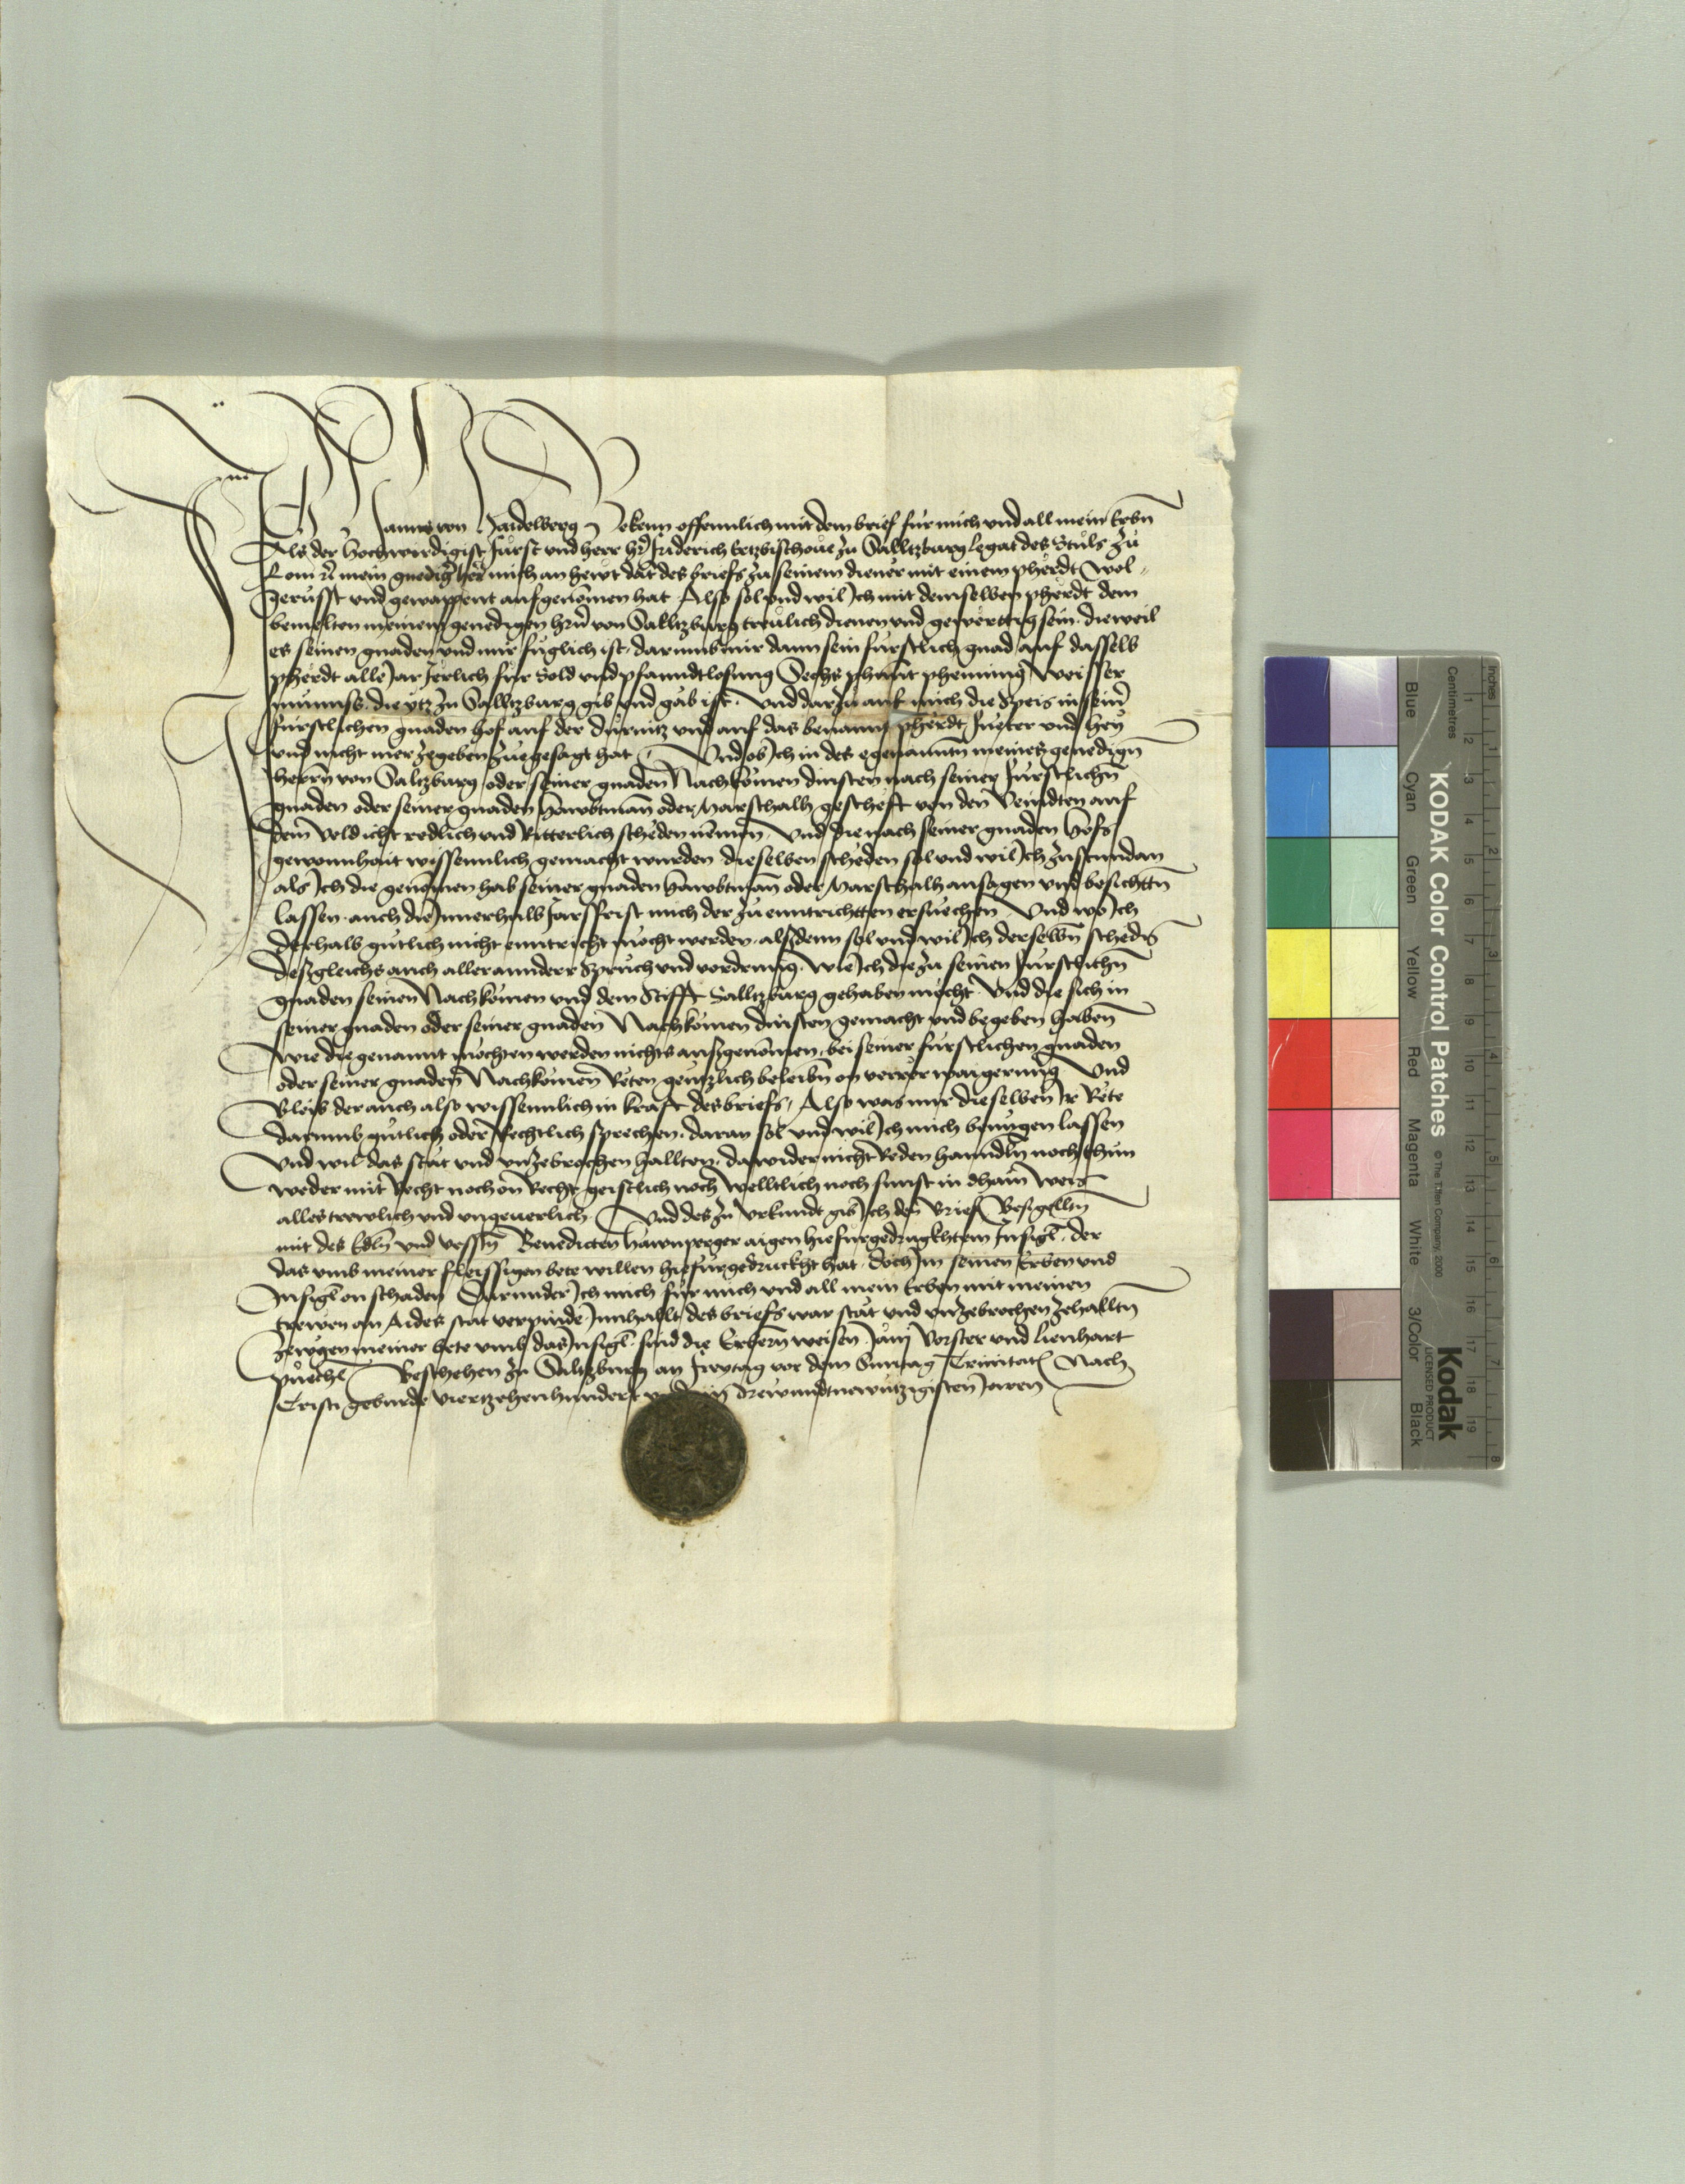 Ich Hanns von Haidelberg Bekenn offennlich mit dem brief fur mich und all mein Erbn̄
Als der Hochwirdigist Fürst und herr hr̄ Friderich Ertzbischoue zu Salltzburg legat des Stuls zu
Rom rc̄ mein gnediḡ herr̄ mich an hewt dat̄ des briefs zu seinem diener mit einem phërdt wol
Gerüsst und gewappent aufgenomen hat. Also sol und wil Ich mit demselben phërdt dem
bemelten meinem genedigen hrn̄ von Salltzburg treülich dienen und gewërttig sein. dieweil
es seinen gnaden und mir füglich ist. darumb mir dann sein fürstlich gnad auf dasselb
phërdt alle Jar Jërlich für Sold und pfanndtlosung Sechs phunt phenning Weisser
münnss. die ytz zu Salltzburg gib und gäb ist. Und darzu auf mich die Speis in sein̄
fürstlichen gnaden hof auf der dürnitz und auf das benannt phërdt fueter und hey
und nicht mer zegeben zuegesagt hat. Und ob Ich in des egenanntn̄ meines genedign̄
herrn̄ von Saltzburg oder seiner gnaden Nachkomen dinsten nach seiner fürstlichn̄
gnaden oder seiner gnaden Hawbtman̄ oder Marschalh gescheft von den Veindten auf
dem Veld icht redlich und Ritterlich scheden nemen. Und die nach seiner gnaden Hofs
gewonnhait wissennlich gemacht wurden dieselben scheden sol und wil Ich zustundan
als Ich die genomen hab seiner gnaden Hawbtman̄ oder Marschalh ansagen und besichttn̄
lassen. auch die Innerhalb Jarsfrist mich der zu enntrichtten ersuechen. Und wo Ich
derhalb gütlich nicht enntricht mocht werden. alsdenn sol und wil Ich derselbn̄ schedn̄
desgleichs auch aller annderr Spruch und vordrung. wie Ich die zu seinen fürstlichn̄
gnaden seinen Nachkomen und dem Stifft Salltzburg gehaben möcht. Und die sich in
seiner gnaden oder seiner gnaden Nachkomen dinsten gemacht und begeben haben
wie die genannt möchten werden nichts ausgenomen. bei seiner fürstlichen gnaden
oder seiner gnaden Nachkomen Reten gentzlich beleibn̄ on verrer waigerung Und
Bleib der auch also wissennlich in kraft des briefs. Also was mir dieselben Ir Rete
darumb gütlich oder Rechtlich sprechen. daran sol und wil Ich mich benügen lassen
Und wil das stät und unzebrochen hallten. dawider nicht Reden hanndln̄ noch thun
weder mit Recht noch on Recht geistlich noch Welltlich noch sunst in dhain Weis
alles trewlich und ungeuerlich. Und des zu Urkundt gib Ich den Brief Besigelltn̄
mit des Edln̄ und Vesstn̄ Benedicten Hawnperger aigen hiefürgedrugkhtem Insigl. der
das umb meiner fleissigen bete willen hiefürgedruckht hat. doch Im seinen Erben und
Insigl on schaden Darunder Ich mich für mich und all mein Erben mit meinen
trewen an Aides stat verpinde Innhallt des briefs war stät und unzebrochen zehalltn̄
Zewgen meiner bete umb das Insigl. sind die Erbern weisen Vorster und Lienhart
püechl Beschehen zu Saltzburg an Freytag vor dem Suntag Trinitatis Nach
Cristi geburde Viertzehenhundert und in drewundtnewntzigisten Jaren
KODAK Color Control Patches © The Tiffen Company, 2000
Kodak
LICENSED PRODUCT
Blue Cyan Green Yellow Red Magenta White 3/Color Black
Inches 1 2 3 4 5 6 7 8
Centimetres 1 2 3 4 5 6 7 8 9 10 11 12 13 14 15 16 17 18 19